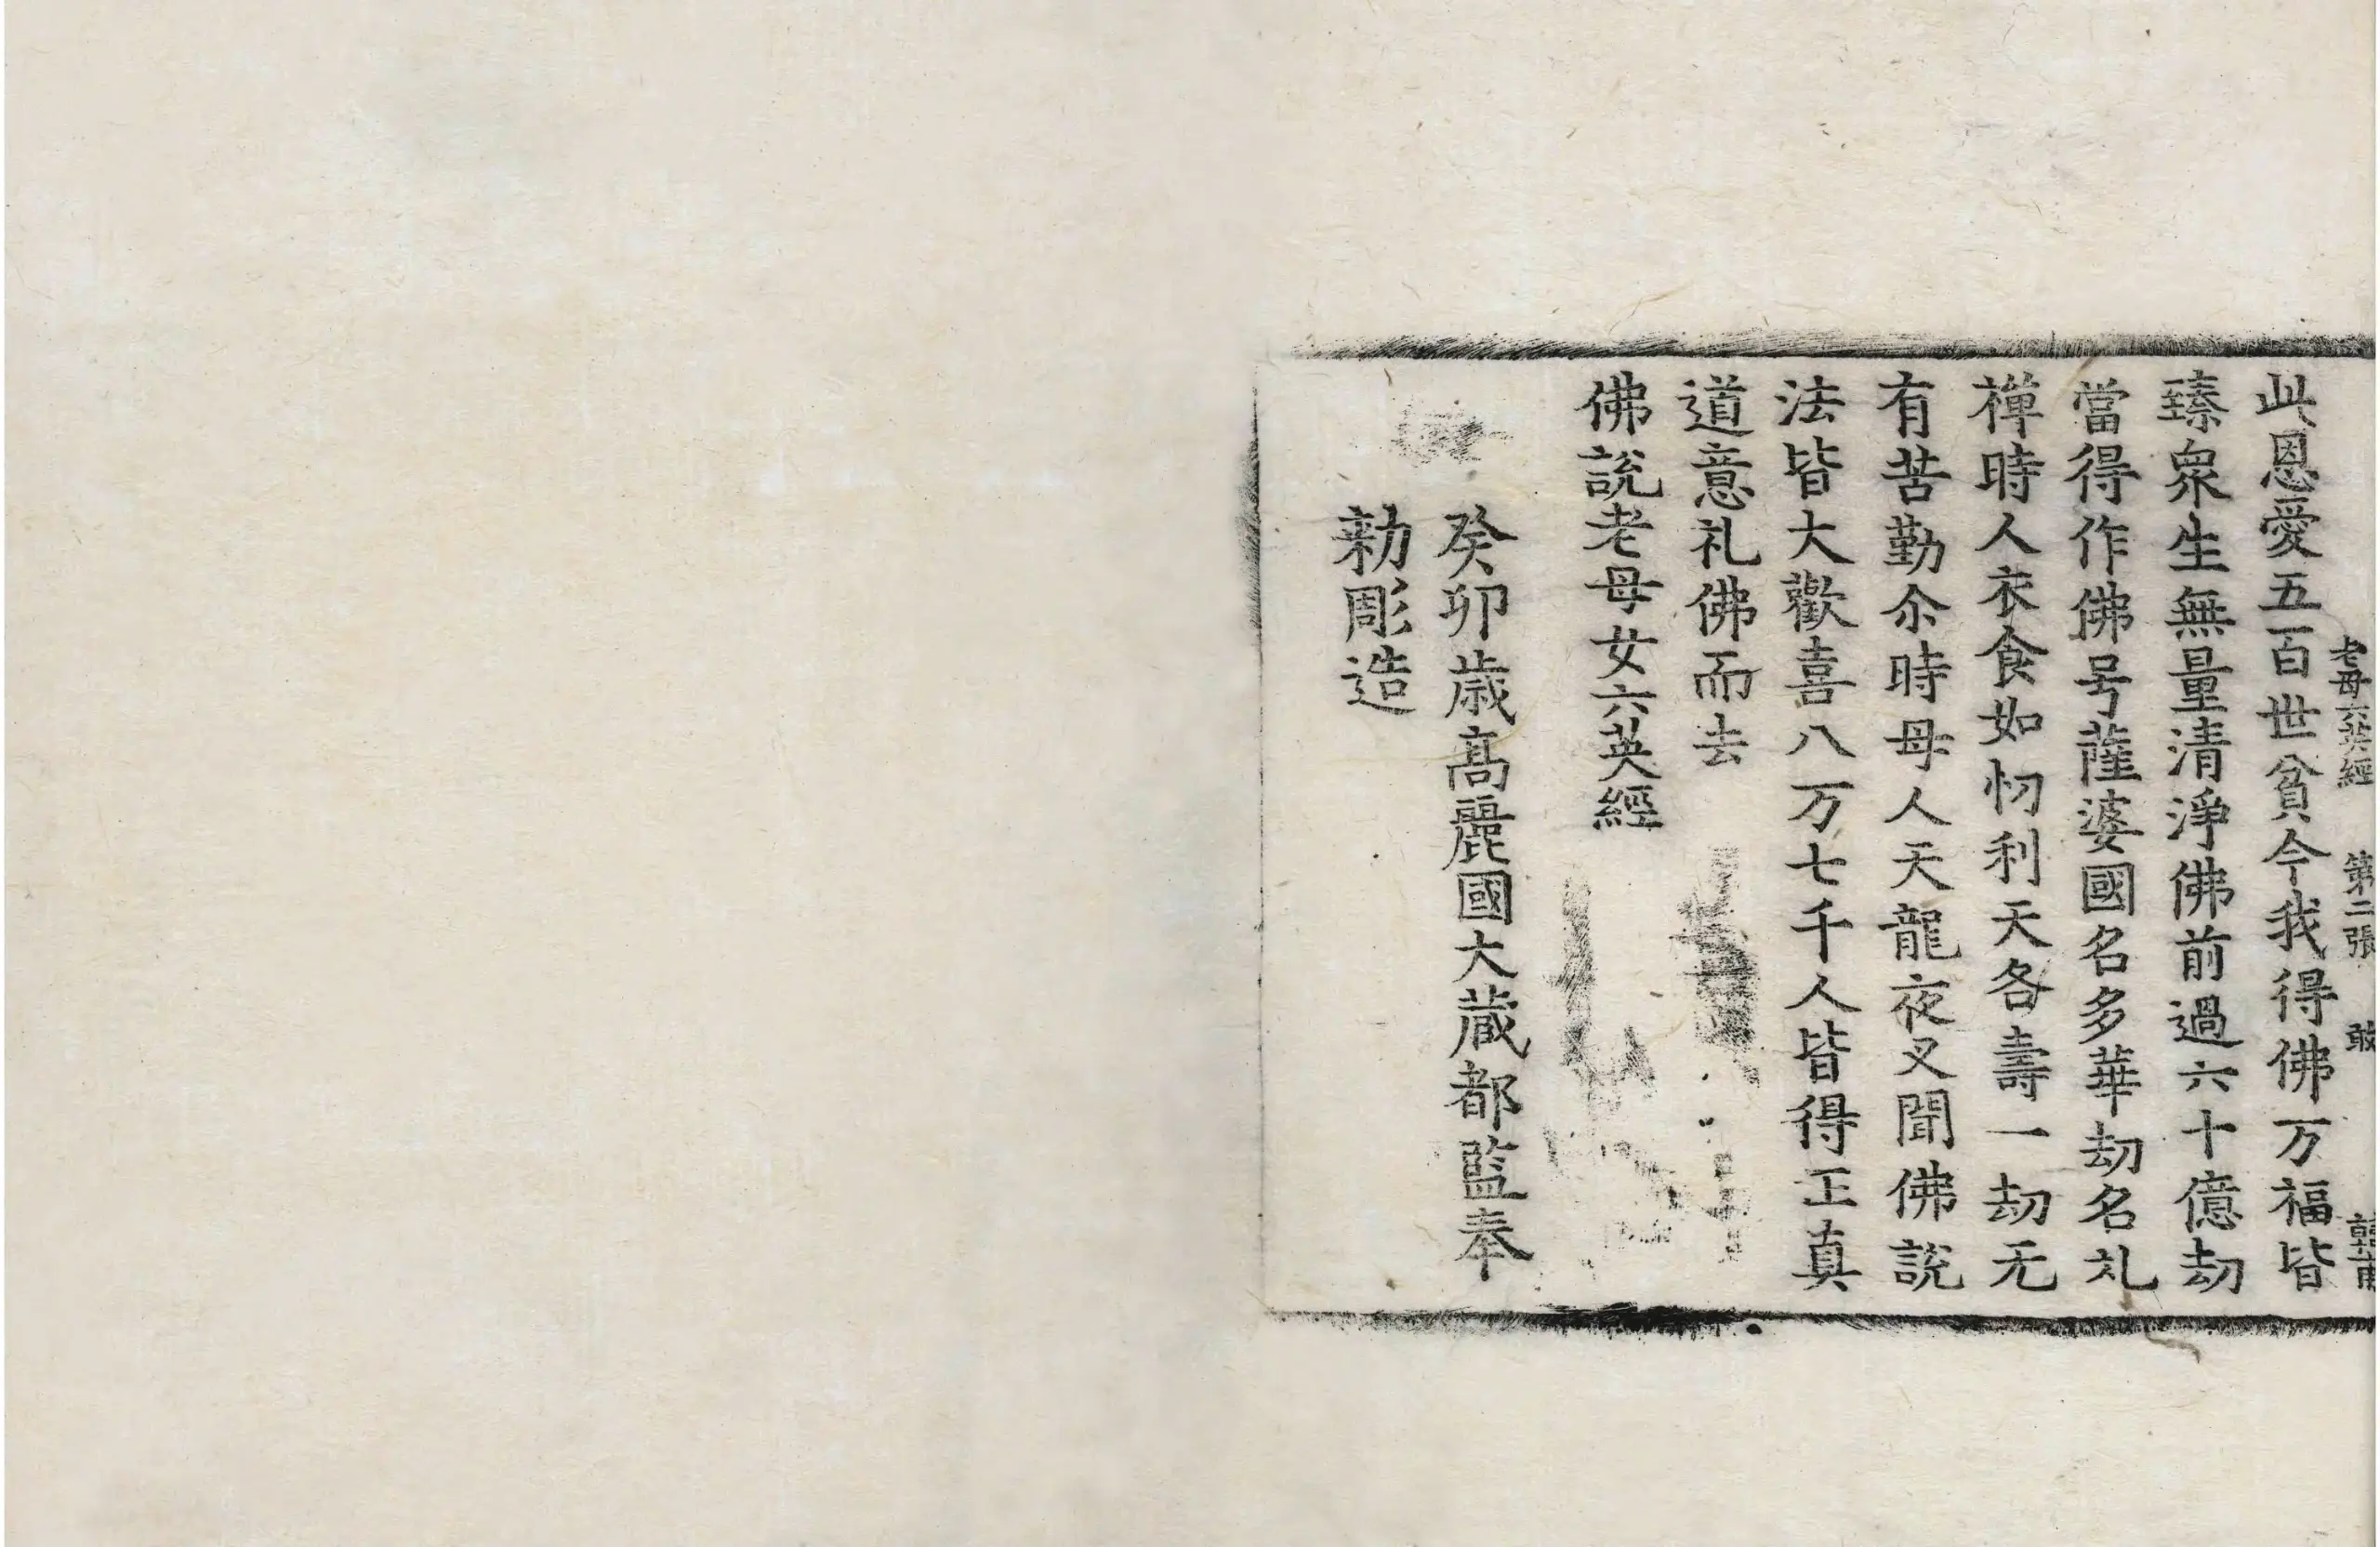 老母六英經 第二張 敢
此恩愛五百世貧今我得佛万福皆
臻衆生無量清淨佛前過六十億劫
當得作佛号薩婆國名多華劫名礼
禅時人衣食如忉利天各壽一劫无
有苦勤尒時母人天龍夜叉聞佛說
法皆大歡喜八万七千人皆得正真
道意礼佛而去
佛說老母女六英經
癸卯歳高麗國大蔵都監奉
勑彫造